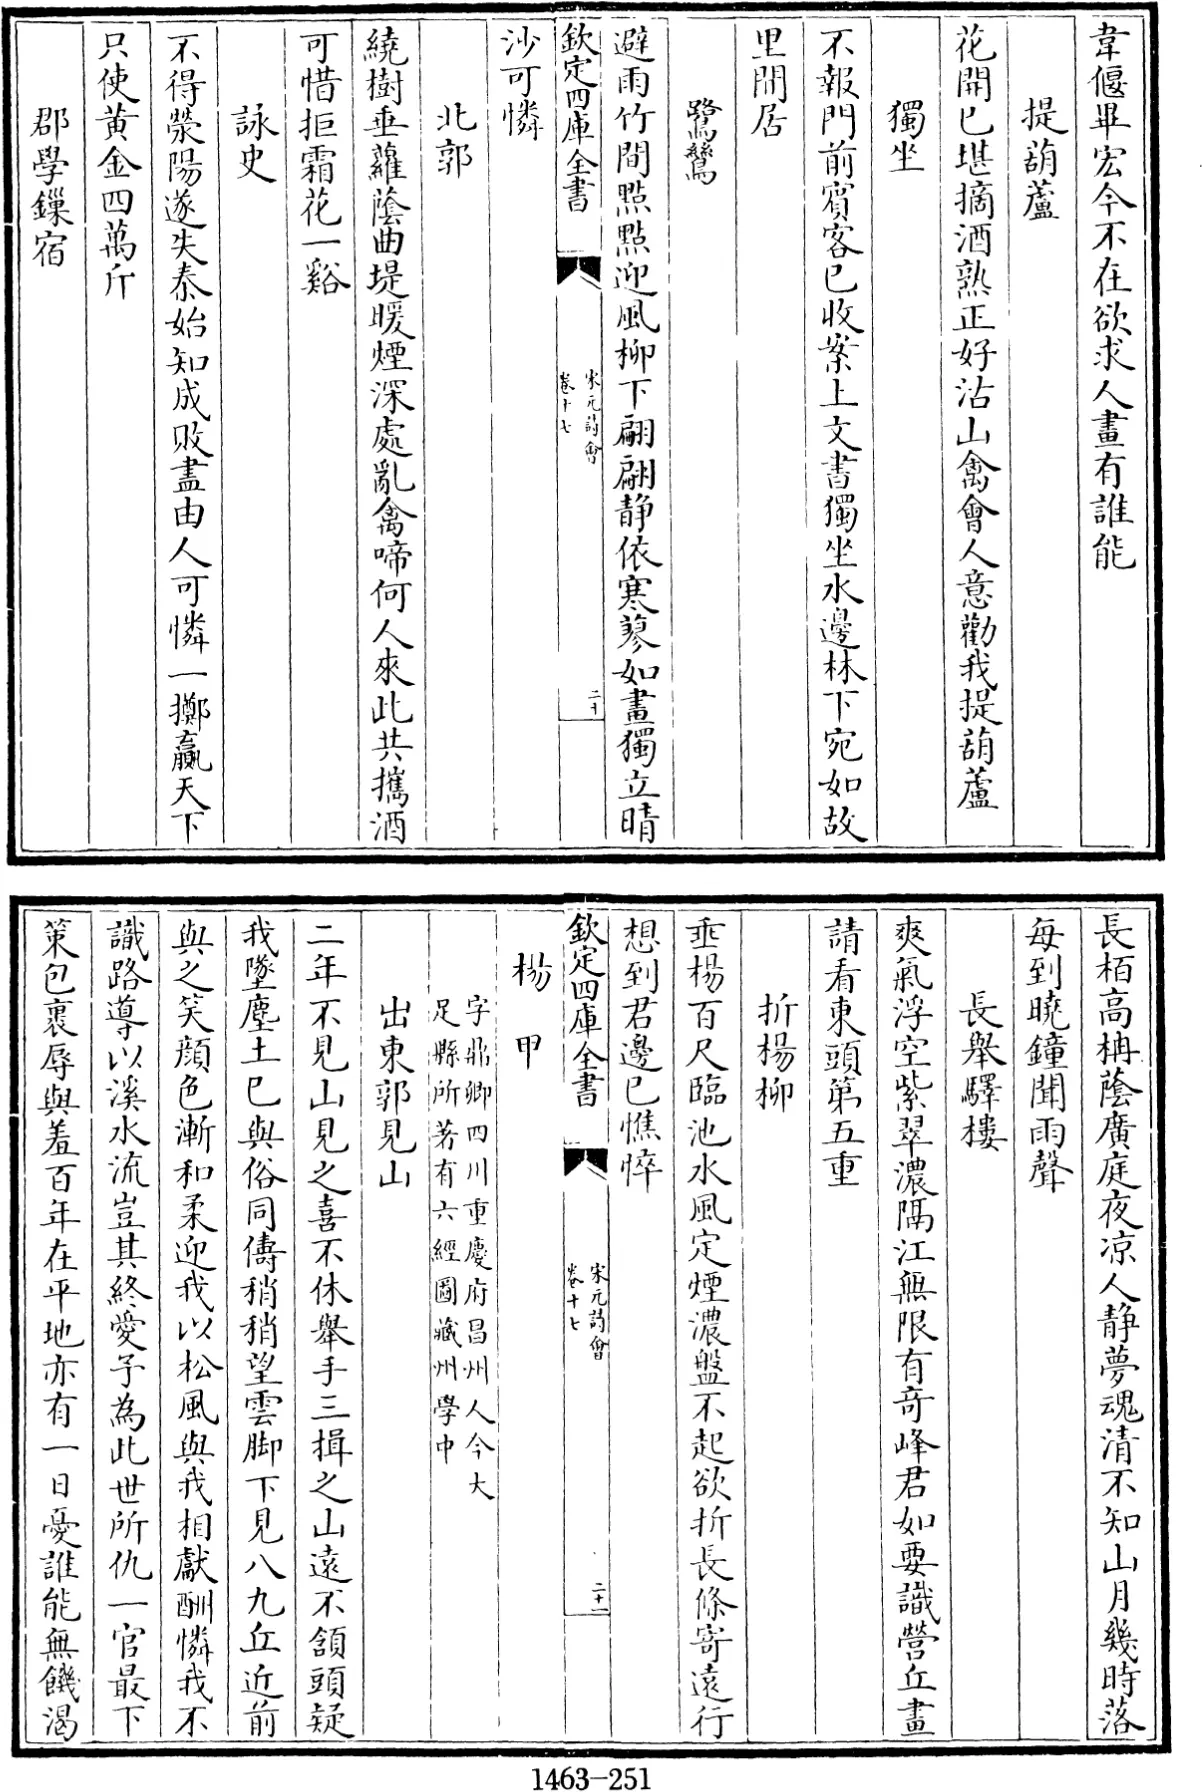 韋偃畢宏今不在欲求人畫有誰能
提葫蘆
花開已堪摘酒熟正好沽山禽會人意勸我提葫蘆
獨坐
不報門前賓客已收案上文書獨坐水邊林下宛如故
里閒居
鷺鷥
避雨竹間點點迎風柳下翩翩静依寒蓼如畫獨立晴
欽定四庫全書
宋元詩會
卷十七
二十
沙可憐
北郭
繞樹垂蘿蔭曲堤暖煙深處亂禽啼何人來此共攜酒
可惜拒霜花一谿
詠史
不得滎陽遂失秦始知成敗盡由人可憐一擲贏天下
只使黄金四萬斤
郡學鏁宿
長栢高柟蔭廣庭夜凉人静夢魂清不知山月幾時落
每到曉鐘聞雨聲
長舉驛樓
爽氣浮空紫翠濃隔江無限有奇峰君如要識營丘畫
請看東頭第五重
折楊柳
垂楊百尺臨池水風定煙濃盤不起欲折長條寄遠行
想到君邊已憔悴
欽定四庫全書
宋元詩會
卷十七
二十一
楊甲
字鼎卿四川重慶府昌州人今大
足縣所著有六經圖藏州學中
出東郭見山
二年不見山見之喜不休舉手三揖之山遠不頷頭疑
我墜塵土已與俗同儔稍稍望雲脚下見八九丘近前
與之笑顔色漸和柔迎我以松風與我相獻酬憐我不
識路導以溪水流豈其終愛予為此世所仇一官最下
策包裹辱與羞百年在平地亦有一日憂誰能無饑渴
1463-251